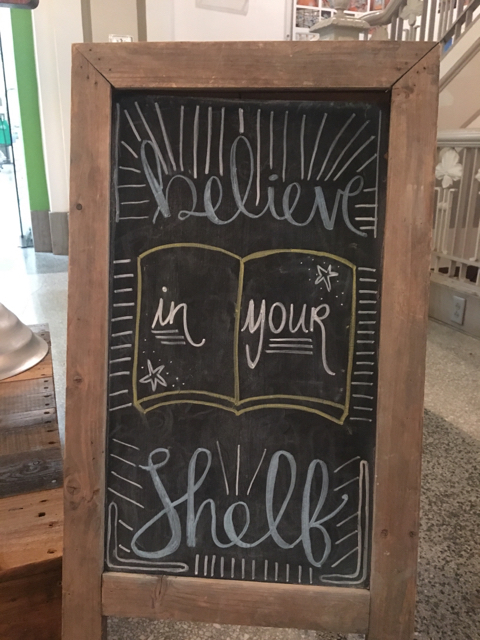 believe
in your
Shelf